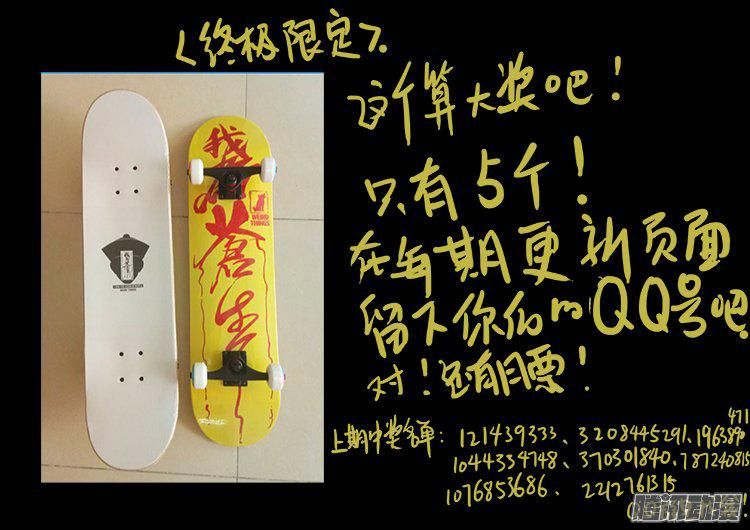 <终极限定>
这个算大奖吧！
只有5个！
在每期更新页面
留下你们的QQ号吧
对！还有月票！
上期中奖名单：121439333、3208445291、1963890
471
1044334748、370301840、787240815
1076853686、2242761315
我为苍生
WEIRD
THINGS
腾讯动漫